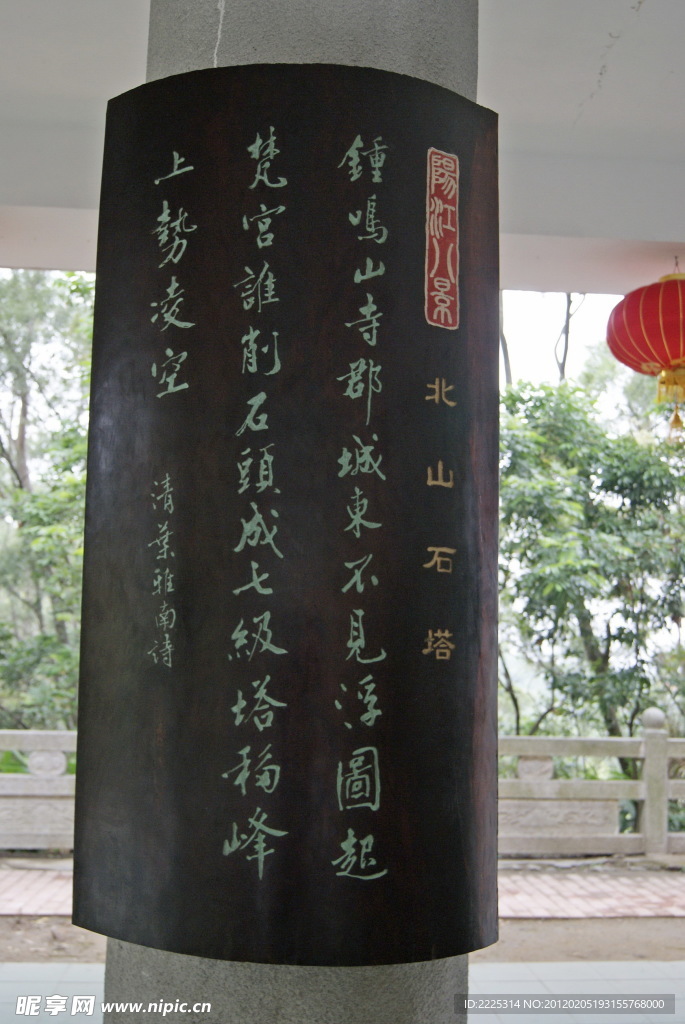 陽江八景
北山石塔
鍾鳴山寺郡城東不見浮圖起
梵宮誰削石頭成七級塔移峰
上勢凌空
清葉雅南詩
昵享网 www.nipic.cn
ID:2225314 NO:20120205193155768000